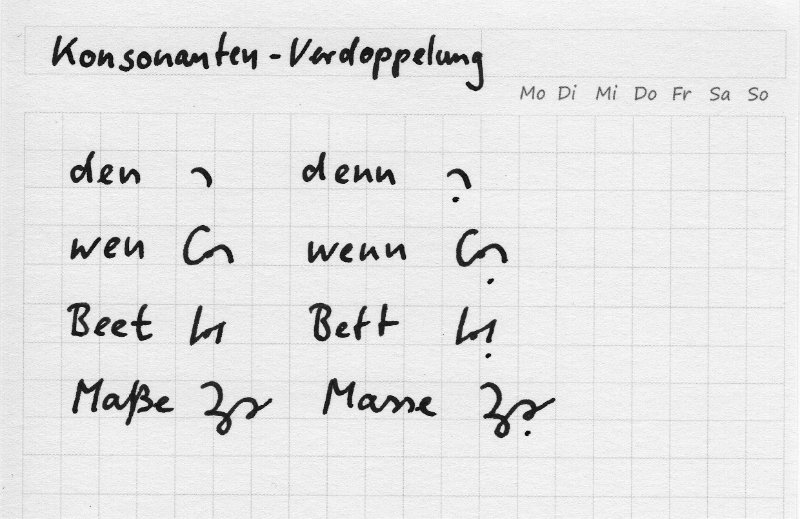 Konsonanten-Verdoppelung
Mo Di Mi Do Fr Sa So
den denn
wen wenn
Beet Bett
Maße Masse